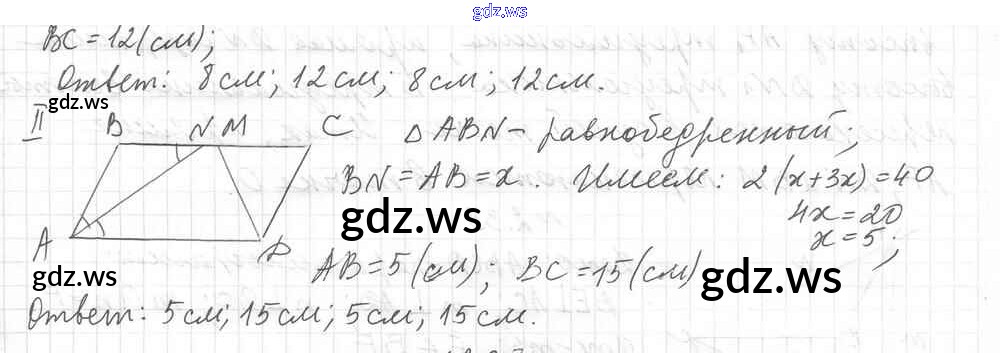 gdz.ws
BC = 12 (см);
Ответ: 8 см; 12 см; 8 см; 12 см.
gdz.ws
II
B N M C
A D
Δ ABN – равнобедренный;
BN = AB = x. Имеем: 2 (x + 3x) = 40
4x = 20
x = 5;
gdz.ws
AB = 5 (см); BC = 15 (см)
gdz.ws
gdz.ws
Ответ: 5 см; 15 см; 5 см; 15 см.